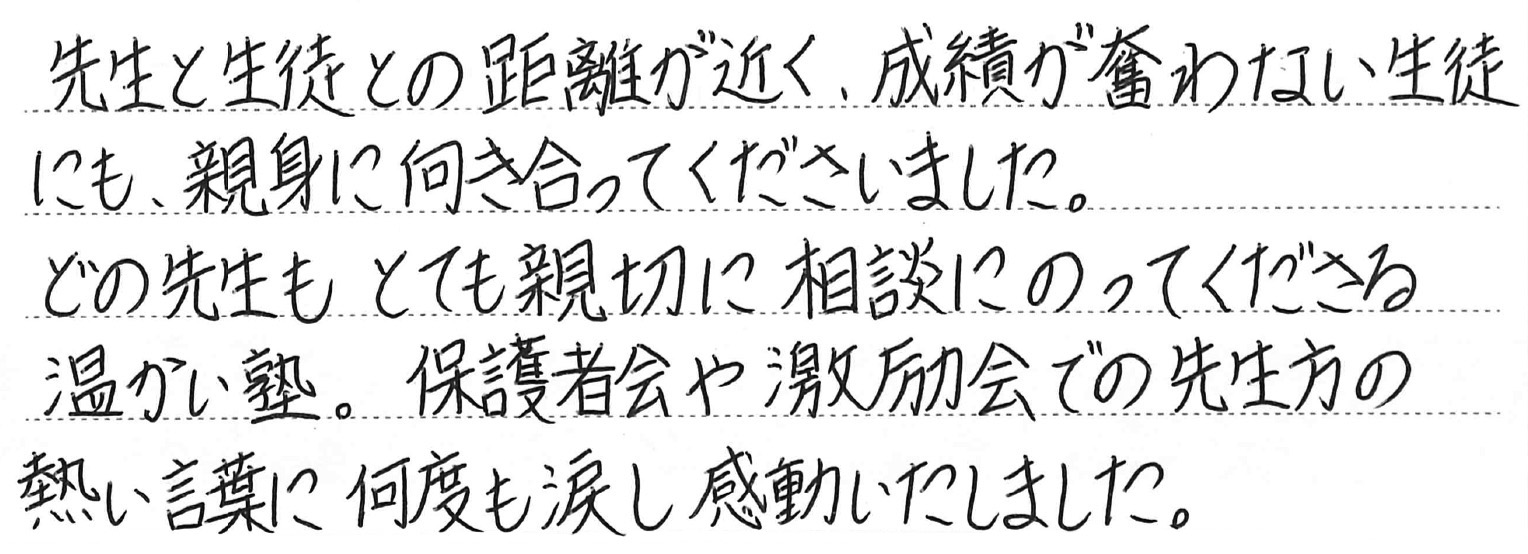 先生と生徒との距離が近く、成績が奮わない生徒
にも、親身に向き合ってくださいました。
どの先生もとても親切に相談にのってくださる
温かい塾。保護者会や激励会での先生方の
熱い言葉に何度も涙し感動いたしました。